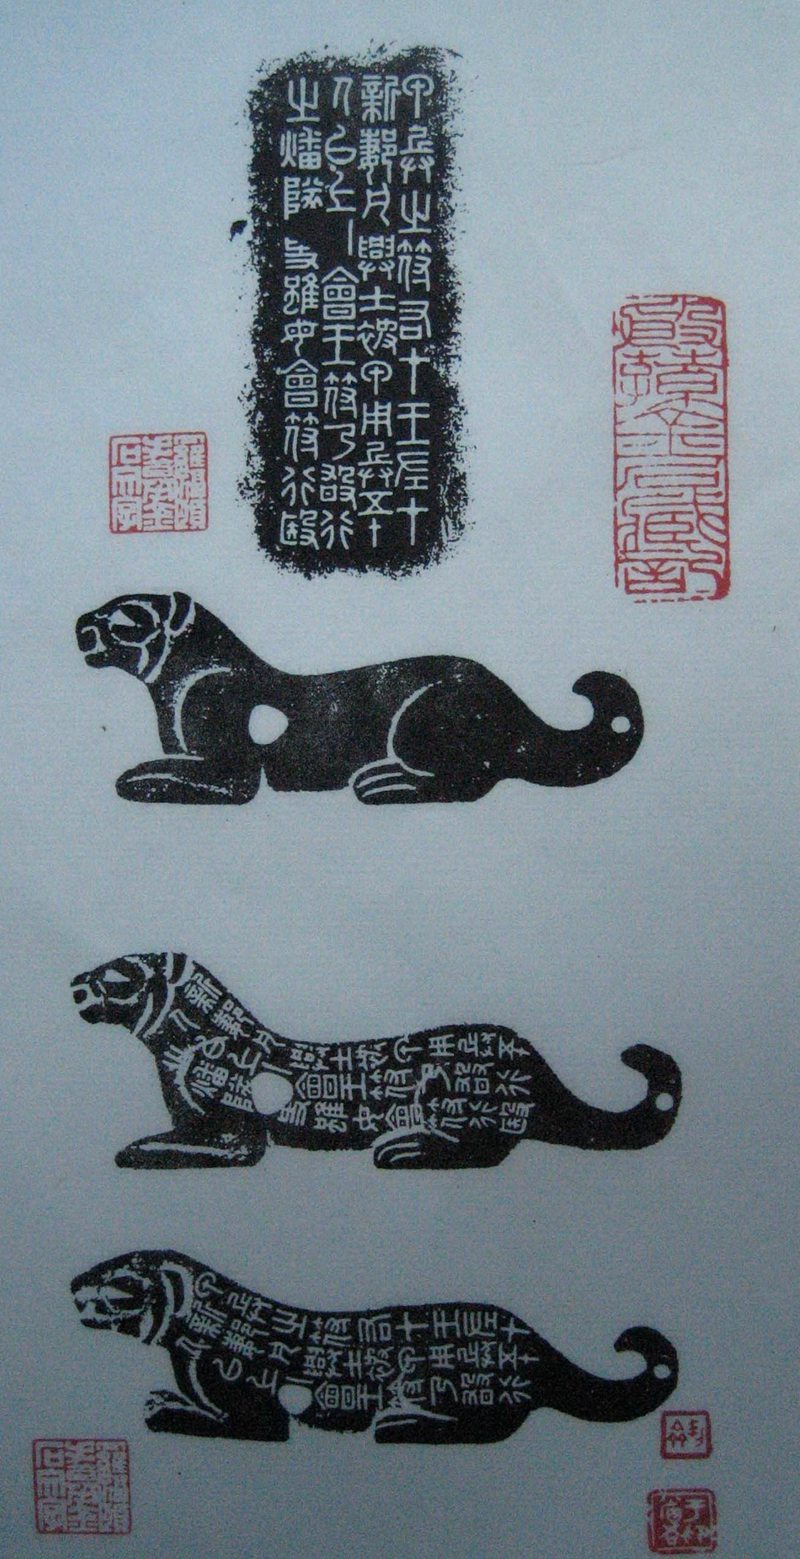 甲兵之符右才王左才
新郪凡興士被甲用兵五十
人以上必會王符乃敢行
之燔隊事雖毋會符行殹
新郪凡興士被甲用兵五十
人以上必會王符乃敢行
之燔隊事雖毋會符行殹
甲兵之符右才王左才
新郪凡興士被甲用兵五十
人以上必會王符乃敢行